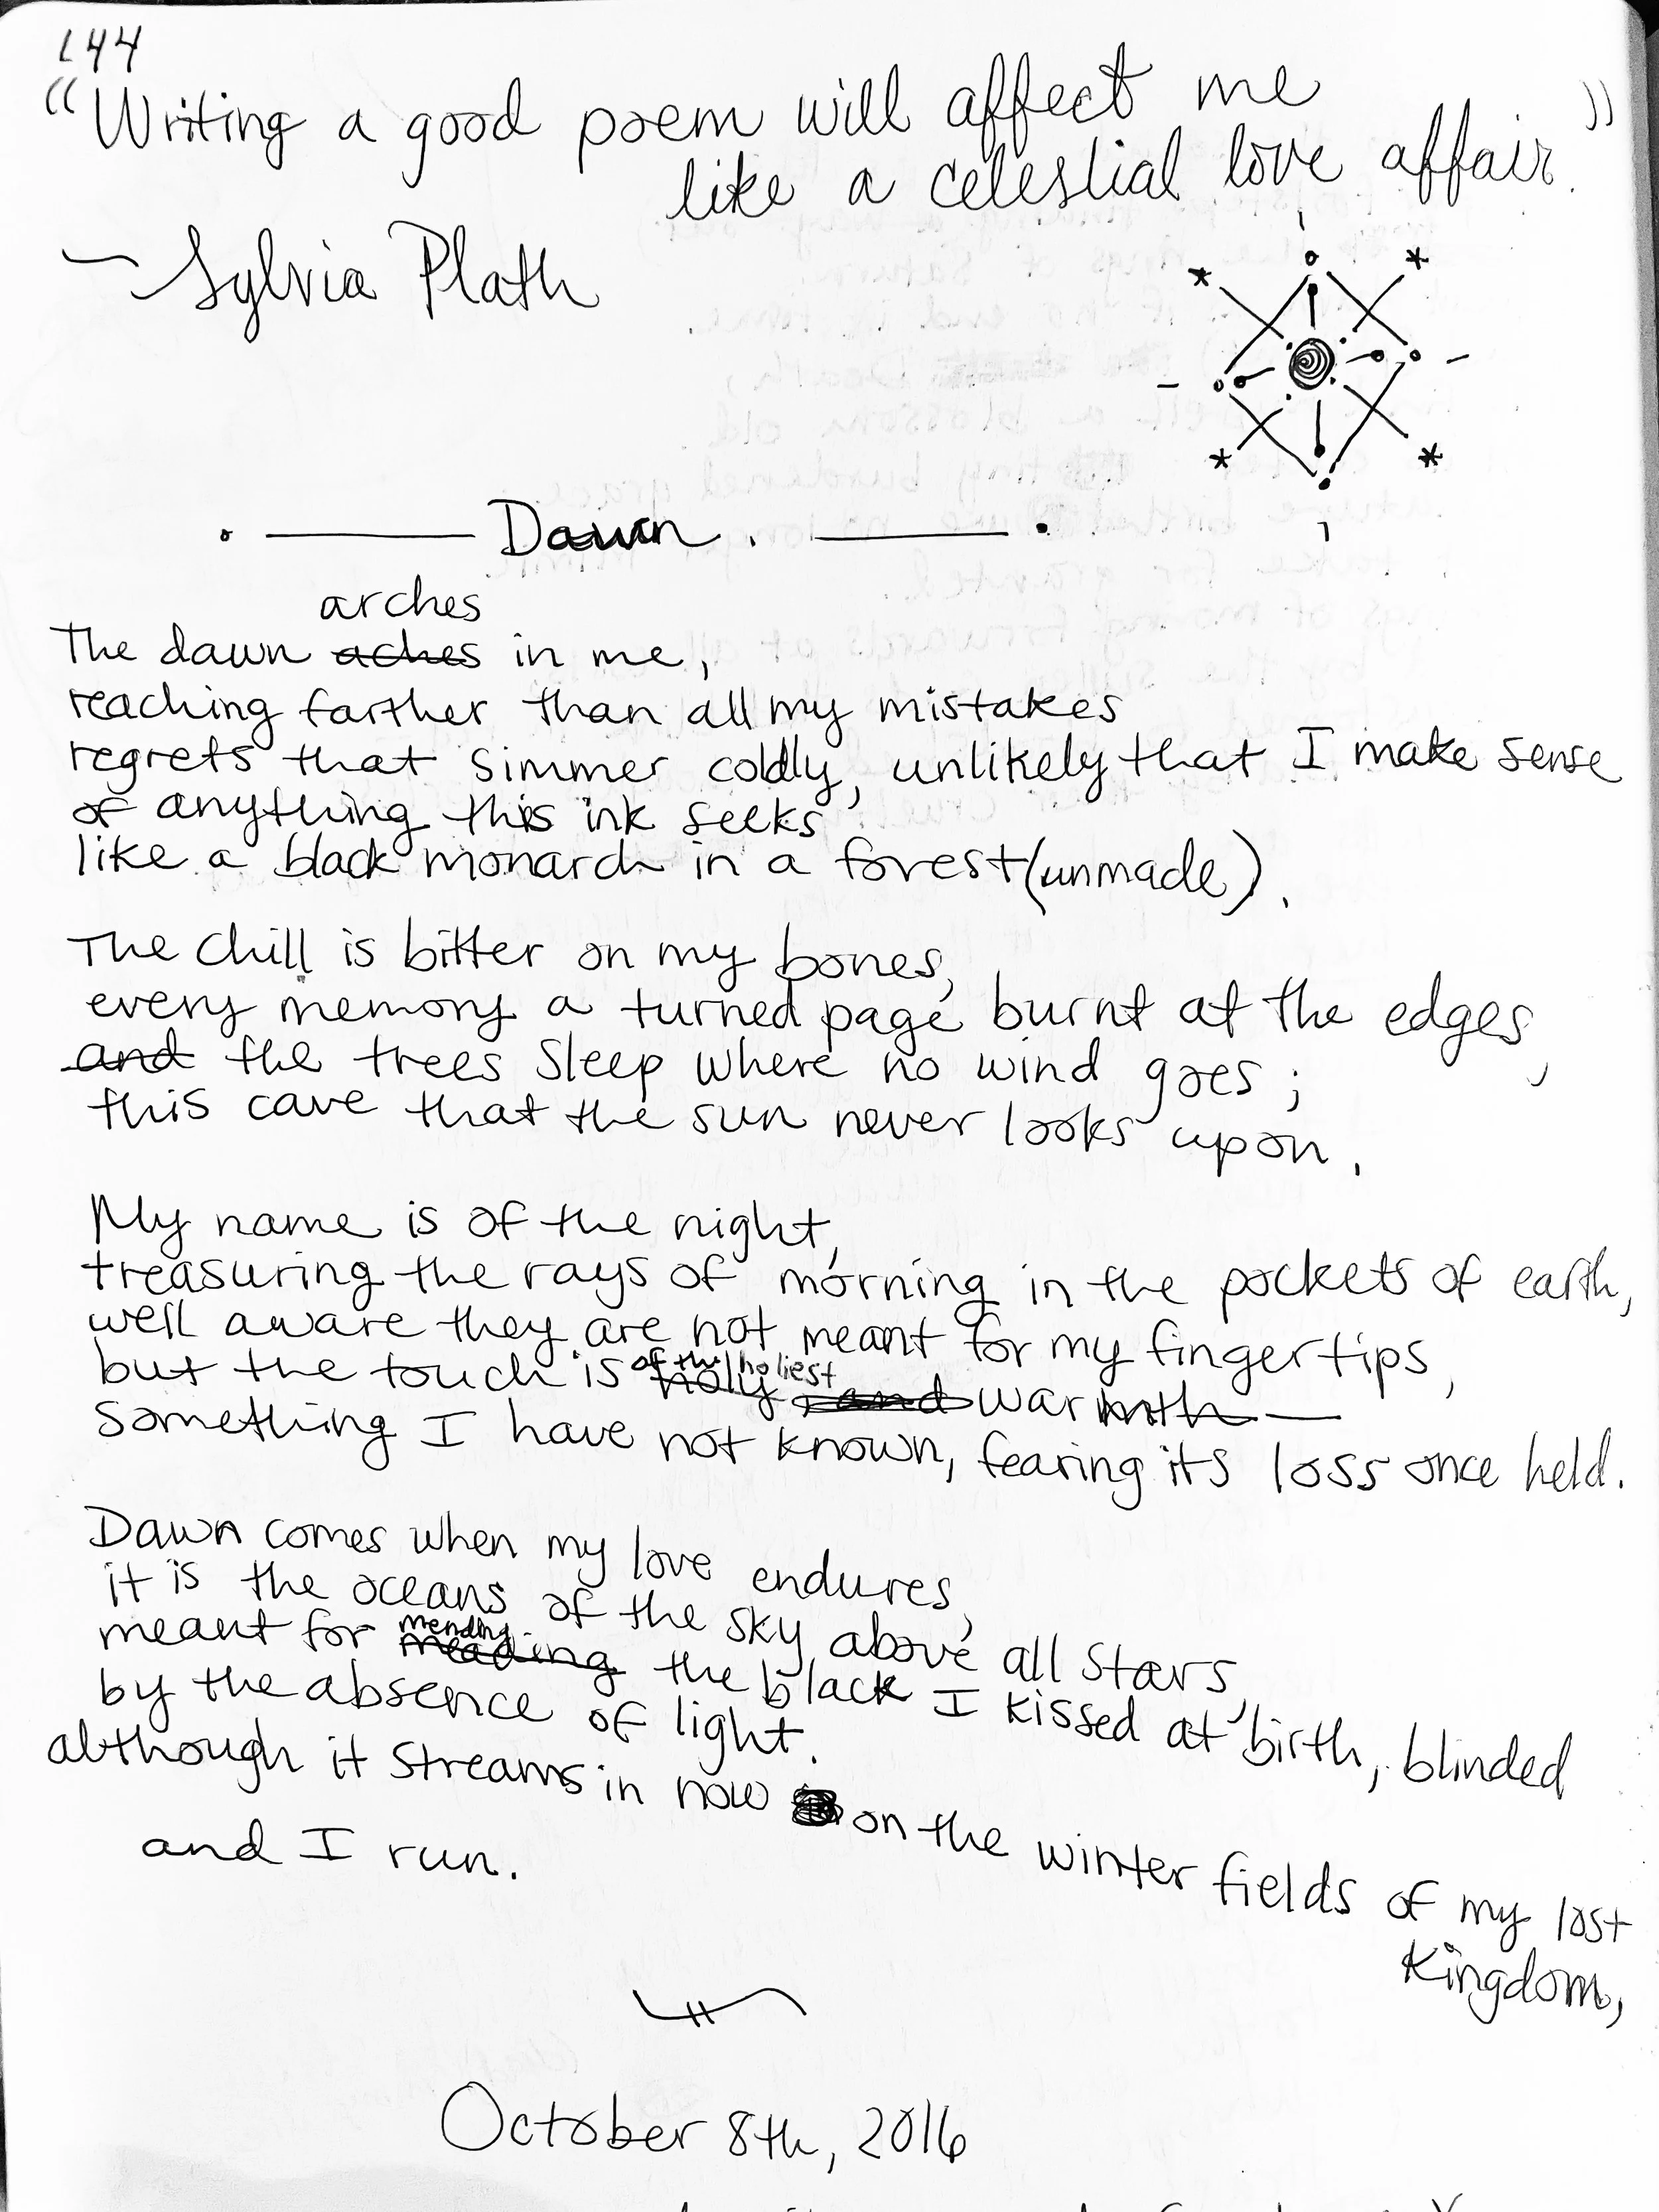 144
"Writing a good poem will affect me
like a celestial love affair."
~ Sylvia Plath
Dawn.
arches
The dawn aches in me,
reaching farther than all my mistakes
regrets that simmer coldly, unlikely that I make sense
of anything this ink seeks
like a black monarch in a forest (unmade).
The chill is bitter on my bones,
every memory a turned page burnt at the edges,
and the trees sleep where no wind goes;
this cave that the sun never looks upon.
My name is of the night,
treasuring the rays of morning in the pockets of earth,
well aware they are not meant for my fingertips,
of the holiest
but the touch is holy and warmth —
something I have not known, fearing its loss once held.
Dawn comes when my love endures,
it is the oceans of the sky above all stars,
mending
meant for the black I kissed at birth, blinded
by the absence of light.
although it streams in now on the winter fields of my lost
Kingdom,
and I run.
October 8th, 2016